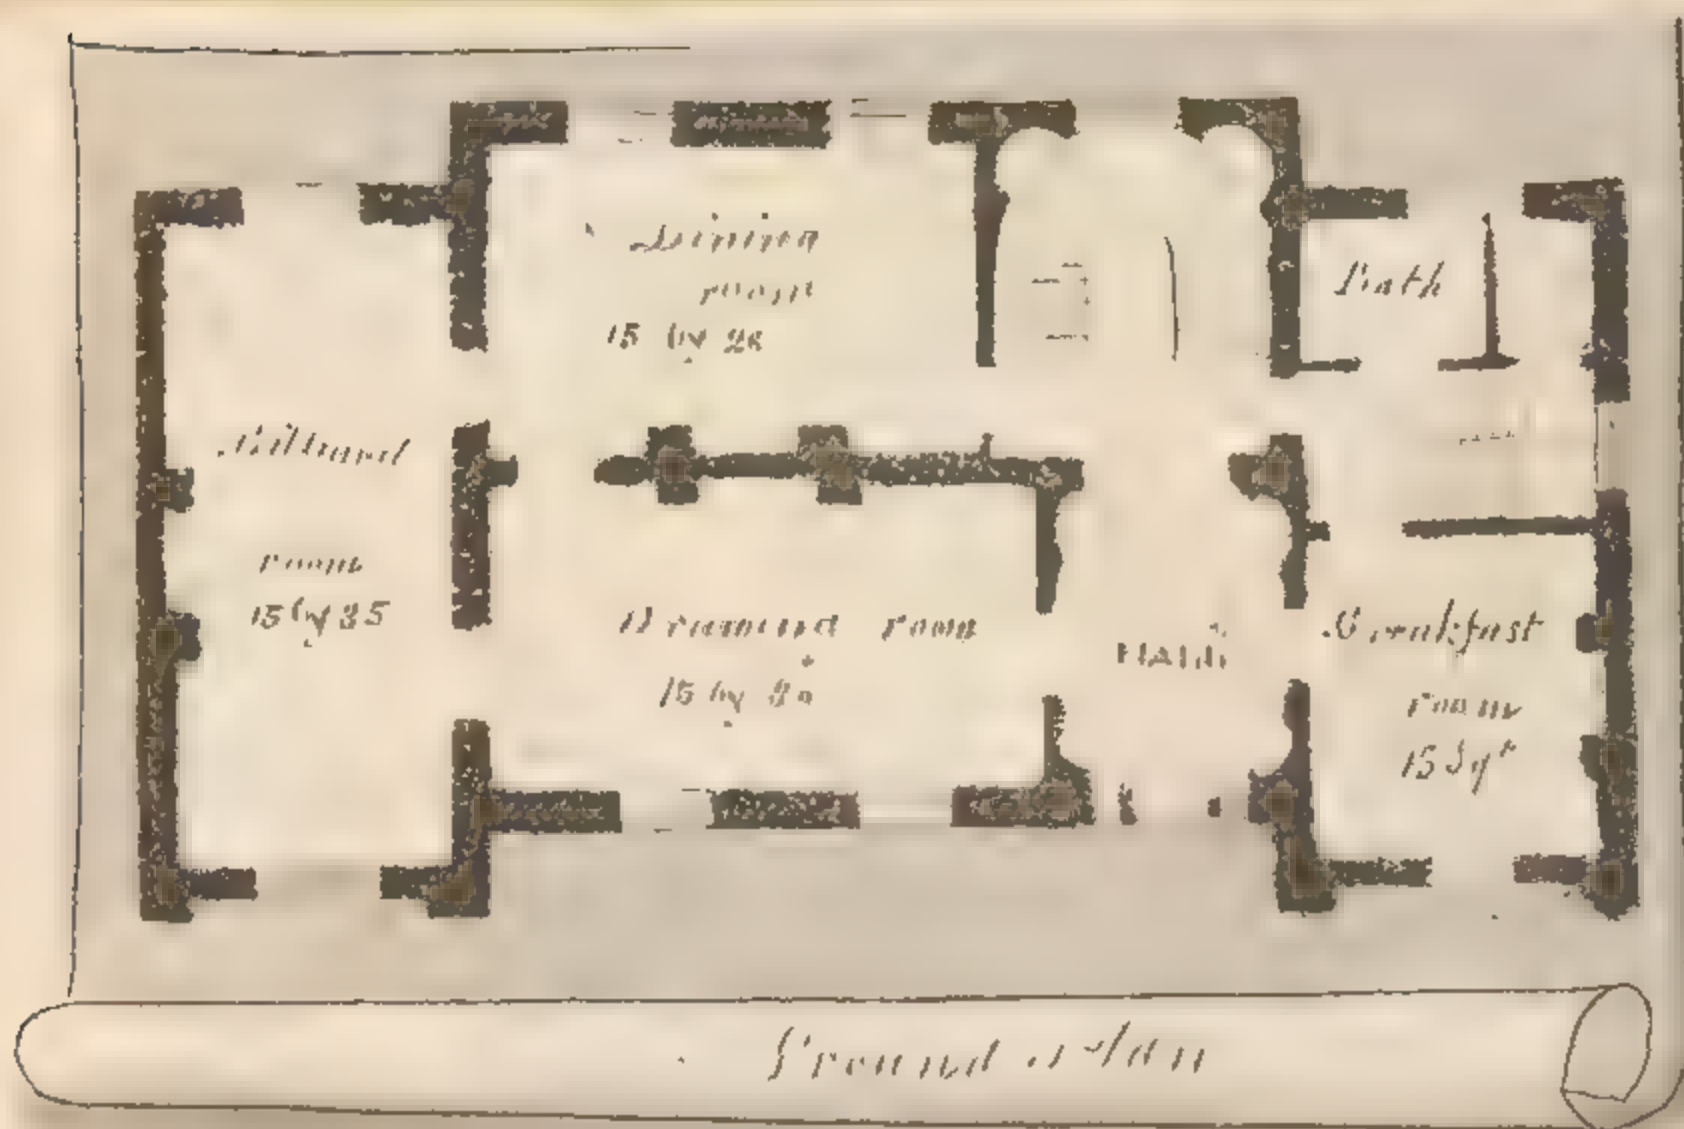 Dining
room
15 by 26
Bath
Billiard
room
15 by 35
Drawing room
15 by 30
HALL
Breakfast
room
15 Sqr
Ground Plan